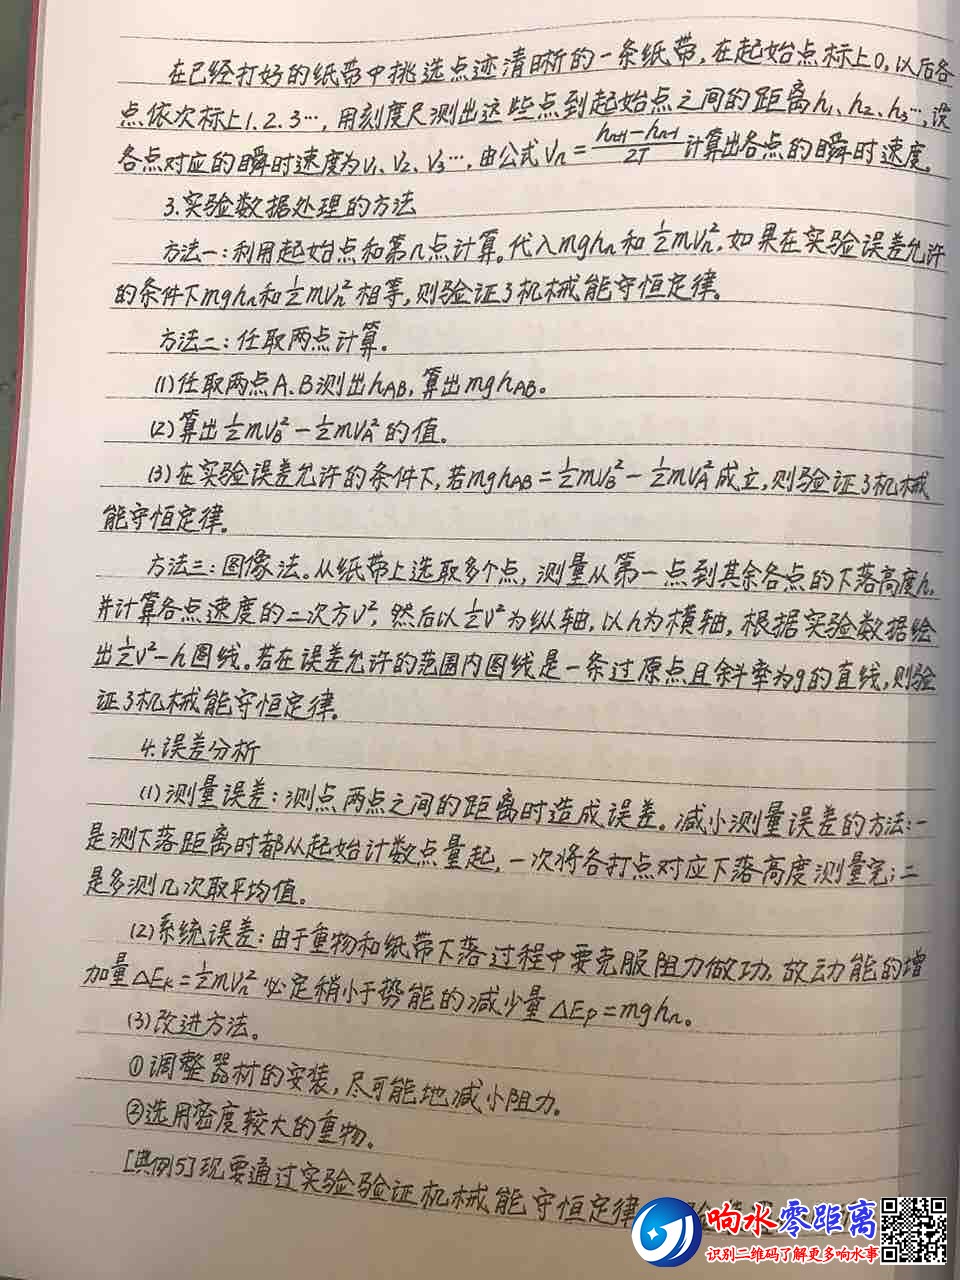 在已经打好的纸带中挑选点迹清晰的一条纸带,在起始点标上0,以后各
点依次标上1.2.3…,用刻度尺测出这些点到起始点之间的距离h₁、h₂、h₃…,设
各点对应的瞬时速度为v₁、v₂、v₃…,由公式Vₙ=(hₙ₊₁-hₙ₋₁)/2T计算出各点的瞬时速度。
3.实验数据处理的方法
方法一:利用起始点和第n点计算。代入mghₙ和½mvₙ²,如果在实验误差允许
的条件下mghₙ和½mvₙ²相等,则验证了机械能守恒定律。
方法二:任取两点计算。
(1)任取两点A、B测出hAB,算出mghAB。
(2)算出½mvB²-½mvA²的值。
(3)在实验误差允许的条件下,若mghAB=½mvB²-½mvA²成立,则验证了机械
能守恒定律。
方法三:图像法。从纸带上选取多个点,测量从第一点到其余各点的下落高度h,
并计算各点速度的二次方v²,然后以½v²为纵轴,以h为横轴,根据实验数据绘
出½v²-h图线。若在误差允许的范围内图线是一条过原点且斜率为g的直线,则验
证了机械能守恒定律。
4.误差分析
(1)测量误差:测点两点之间的距离时造成误差。减小测量误差的方法:一
是测下落距离时都从起始计数点量起,一次将各打点对应下落高度测量完;二
是多测几次取平均值。
(2)系统误差:由于重物和纸带下落过程中要克服阻力做功,故动能的增
加量ΔEₖ=½mvₙ²必定稍小于势能的减少量ΔEp=mghₙ。
(3)改进方法。
①调整器材的安装,尽可能地减小阻力。
②选用密度较大的重物。
[典例5]现要通过实验验证机械能守恒定律
响水零距离
识别二维码了解更多响水事